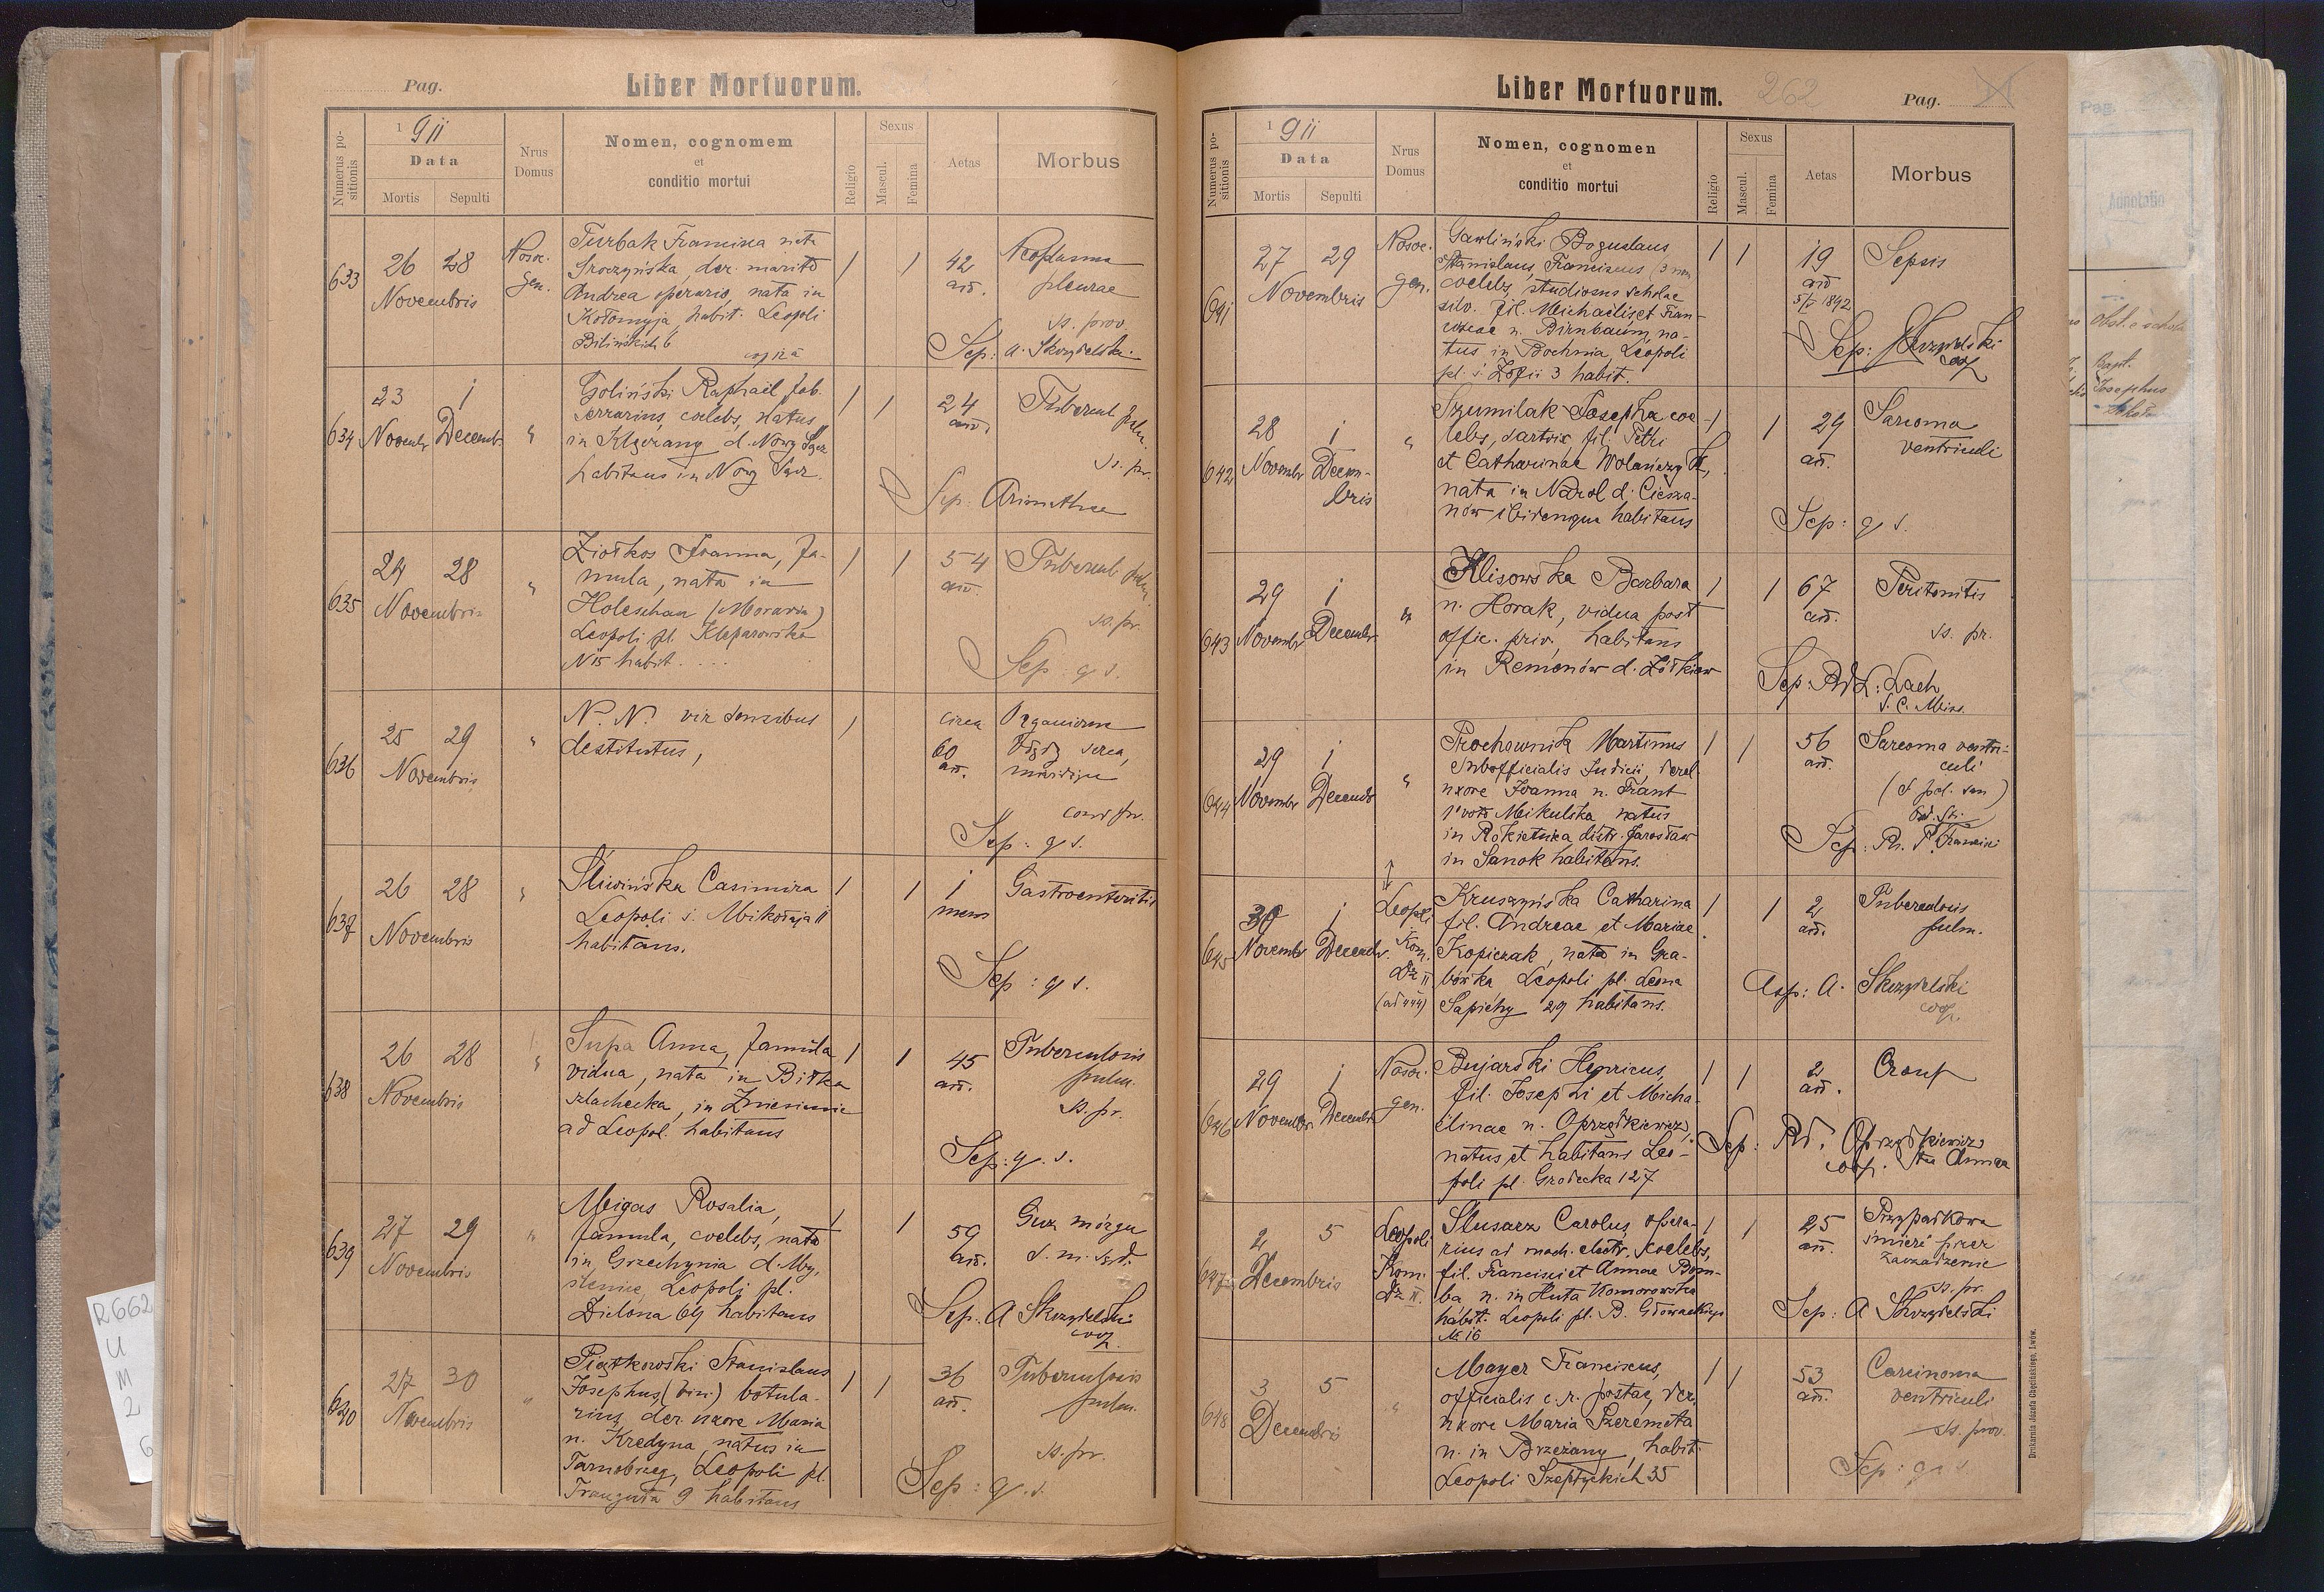 Pag.
Liber Mortuorum.
Numerus positionis
1911
Data
Mortis
Sepulti
Nrus Domus
Nomen, cognomem
et
conditio mortui
Religio
Sexus
Mascul.
Femina
Aetas
Morbus
633
26 28
Novembris
Nosoc. gen.
Turbak Francisca nata
Sroczyńska, der. marito
Andrea operario, nata in
Kołomyja, habit. Leopoli
Bilińskich 6
1 1
42
an.
Neoplasma
pleurae
ss. prov.
Sep: A. Skrzydelski
634
23 1
Novembr. Decemb.
"
Goliński Raphael fab.
ferrarius, coelebs, natus
in Klęczany d. Nowy Sącz
habitans in Nowy Sącz.
1 1
24
ann.
Tubercul. pulm.
ss. pr.
Sep: Arimathea
635
24 28
Novembris
"
Ziołkos Joanna, fa-
mula, nata in
Holeschau (Moravia)
Leopoli pl. Kleparowska
N 15 habit. ...
1 1
54
an.
Tubercul. pulm.
ss. pr.
Sep: q s.
636
25 29
Novembris
"
N. N. vir sensibus
destitutus,
1
circa
60
an.
Organiczna
wada serca,
Sep: q s.
637
26 28
Novembris
"
Śliwińska Casimira
Leopoli ś. Mikołaja 11
habitans.
1 1
1
mens
Gastroenteritis
Sep: q s.
638
26 28
Novembris
"
Supa Anna, famula
vidua, nata in Biłka
szlachecka, in Zniesienie
ad Leopol. habitans
1 1
45
an.
Tuberculosis
pulm.
ss. pr.
Sep: q. s.
639
27 29
Novembris
"
Meigas Rosalia,
famula, coelebs, nata
in Grzechynia d. My-
ślenice, Leopoli pl.
Zielona 69 habitans
1 1
59
an.
Guz mózgu
Sep. A Skrzydelski
coop.
640
27 30
Novembris
"
Piątkowski Stanislaus
Josephus (bin.) botula-
rius, der. uxore Maria
n. Kredyna, natus in
Tarnobrzeg, Leopoli pl.
Traugutta 9 habitans
1 1
36
an.
Tuberculosis
pulm.
ss. pr.
Sep: q. s.
Liber Mortuorum.
262
Pag.
Numerus positionis
1911
Data
Mortis
Sepulti
Nrus Domus
Nomen, cognomen
et
conditio mortui
Religio
Sexus
Mascul.
Femina
Aetas
Morbus
641
27 29
Novembris
Nosoc. gen.
Gawliński Boguslaus,
Stanislaus, Franciscus (3 nom.
coelebs, studiosus scholae
silv. fil. Michaelis et Fran-
ciscae n. Birnbaum, na-
tus in Bochnia, Leopoli
pl. ś. Zofii 3 habit.
1 1
19
an
5/5 1892
Sepsis
Sep: Skrzydelski
coop
642
28 1
Novembr Decem-
bris
"
Szumilak Josepha coe-
lebs, sartrix, fil. Petri
et Catharinae Wolańczyk,
nata in Narol d. Ciesza-
nów ibidemque habitans
1 1
29
an.
Sarcoma
ventriculi
Sep: q s.
643
29 1
Novembr Decembr.
"
Klisowska Barbara
n. Horak, vidua post
offic. priv. habitans
in Remenów d. Żółkiew
1 1
67
an.
Peritonitis
ss. pr.
Sep: Lach
644
29 1
Novembr Decembr
"
Prochownik Martinus
subofficialis Judicii, derel.
uxore Joanna n. Frant
1º voto Mikulska natus
in Rokietnica distr. Jarosław
in Sanok habitans.
1 1
56
an.
Sarcoma ventri-
culi
645
30 1
Novembr Decembr.
Leopoli
Kom.
Dz II
(ad 444)
Kruszyńska Catharina
fil. Andreae et Mariae
Kopiczak, nata in Gra-
bówka Leopoli pl. Leona
Sapiehy 29 habitans.
1 1
2
an.
Tuberculosis
pulm.
Asp: A. Skrzydelski
coop.
646
29 1
Novembr Decembr
Nosoc. gen.
Bujarski Henricus,
fil. Josephi et Micha-
elinae n. Oprządkiewicz,
natus et habitans Leo-
poli pl. Grodecka 127
1 1
2
an.
Croup
Sep: Rd. Oprządkiewicz
coop. Stae Annae
647
2 5
Decembris
Leopoli
Kom.
Dz II.
Slusarz Carolus, opera-
rius ad mach. electr. coelebs,
fil. Francisci et Annae Bom-
ba n. in Huta Komorowska
habit. Leopoli pl. B. Głowackiego
№ 16
1 1
25
an.
Przypadkowa
śmierć przez
zaczadzenie
ss. pr.
Sep: A Skrzydelski
648
3 5
Decembris
"
Mayer Franciscus,
officialis c. r. postae, der.
uxore Maria Szeremeta
n. in Brzeżany, habit.
Leopoli Szeptyckich 35
1 1
53
an.
Carcinoma
ventriculi
ss. prov.
Sep: q s
Drukarnia Józefa Chęcińskiego, Lwów.
Pag.
Adnotatio
Obst. e schola
Bapt.
Josephus
R662
U
M
2
6